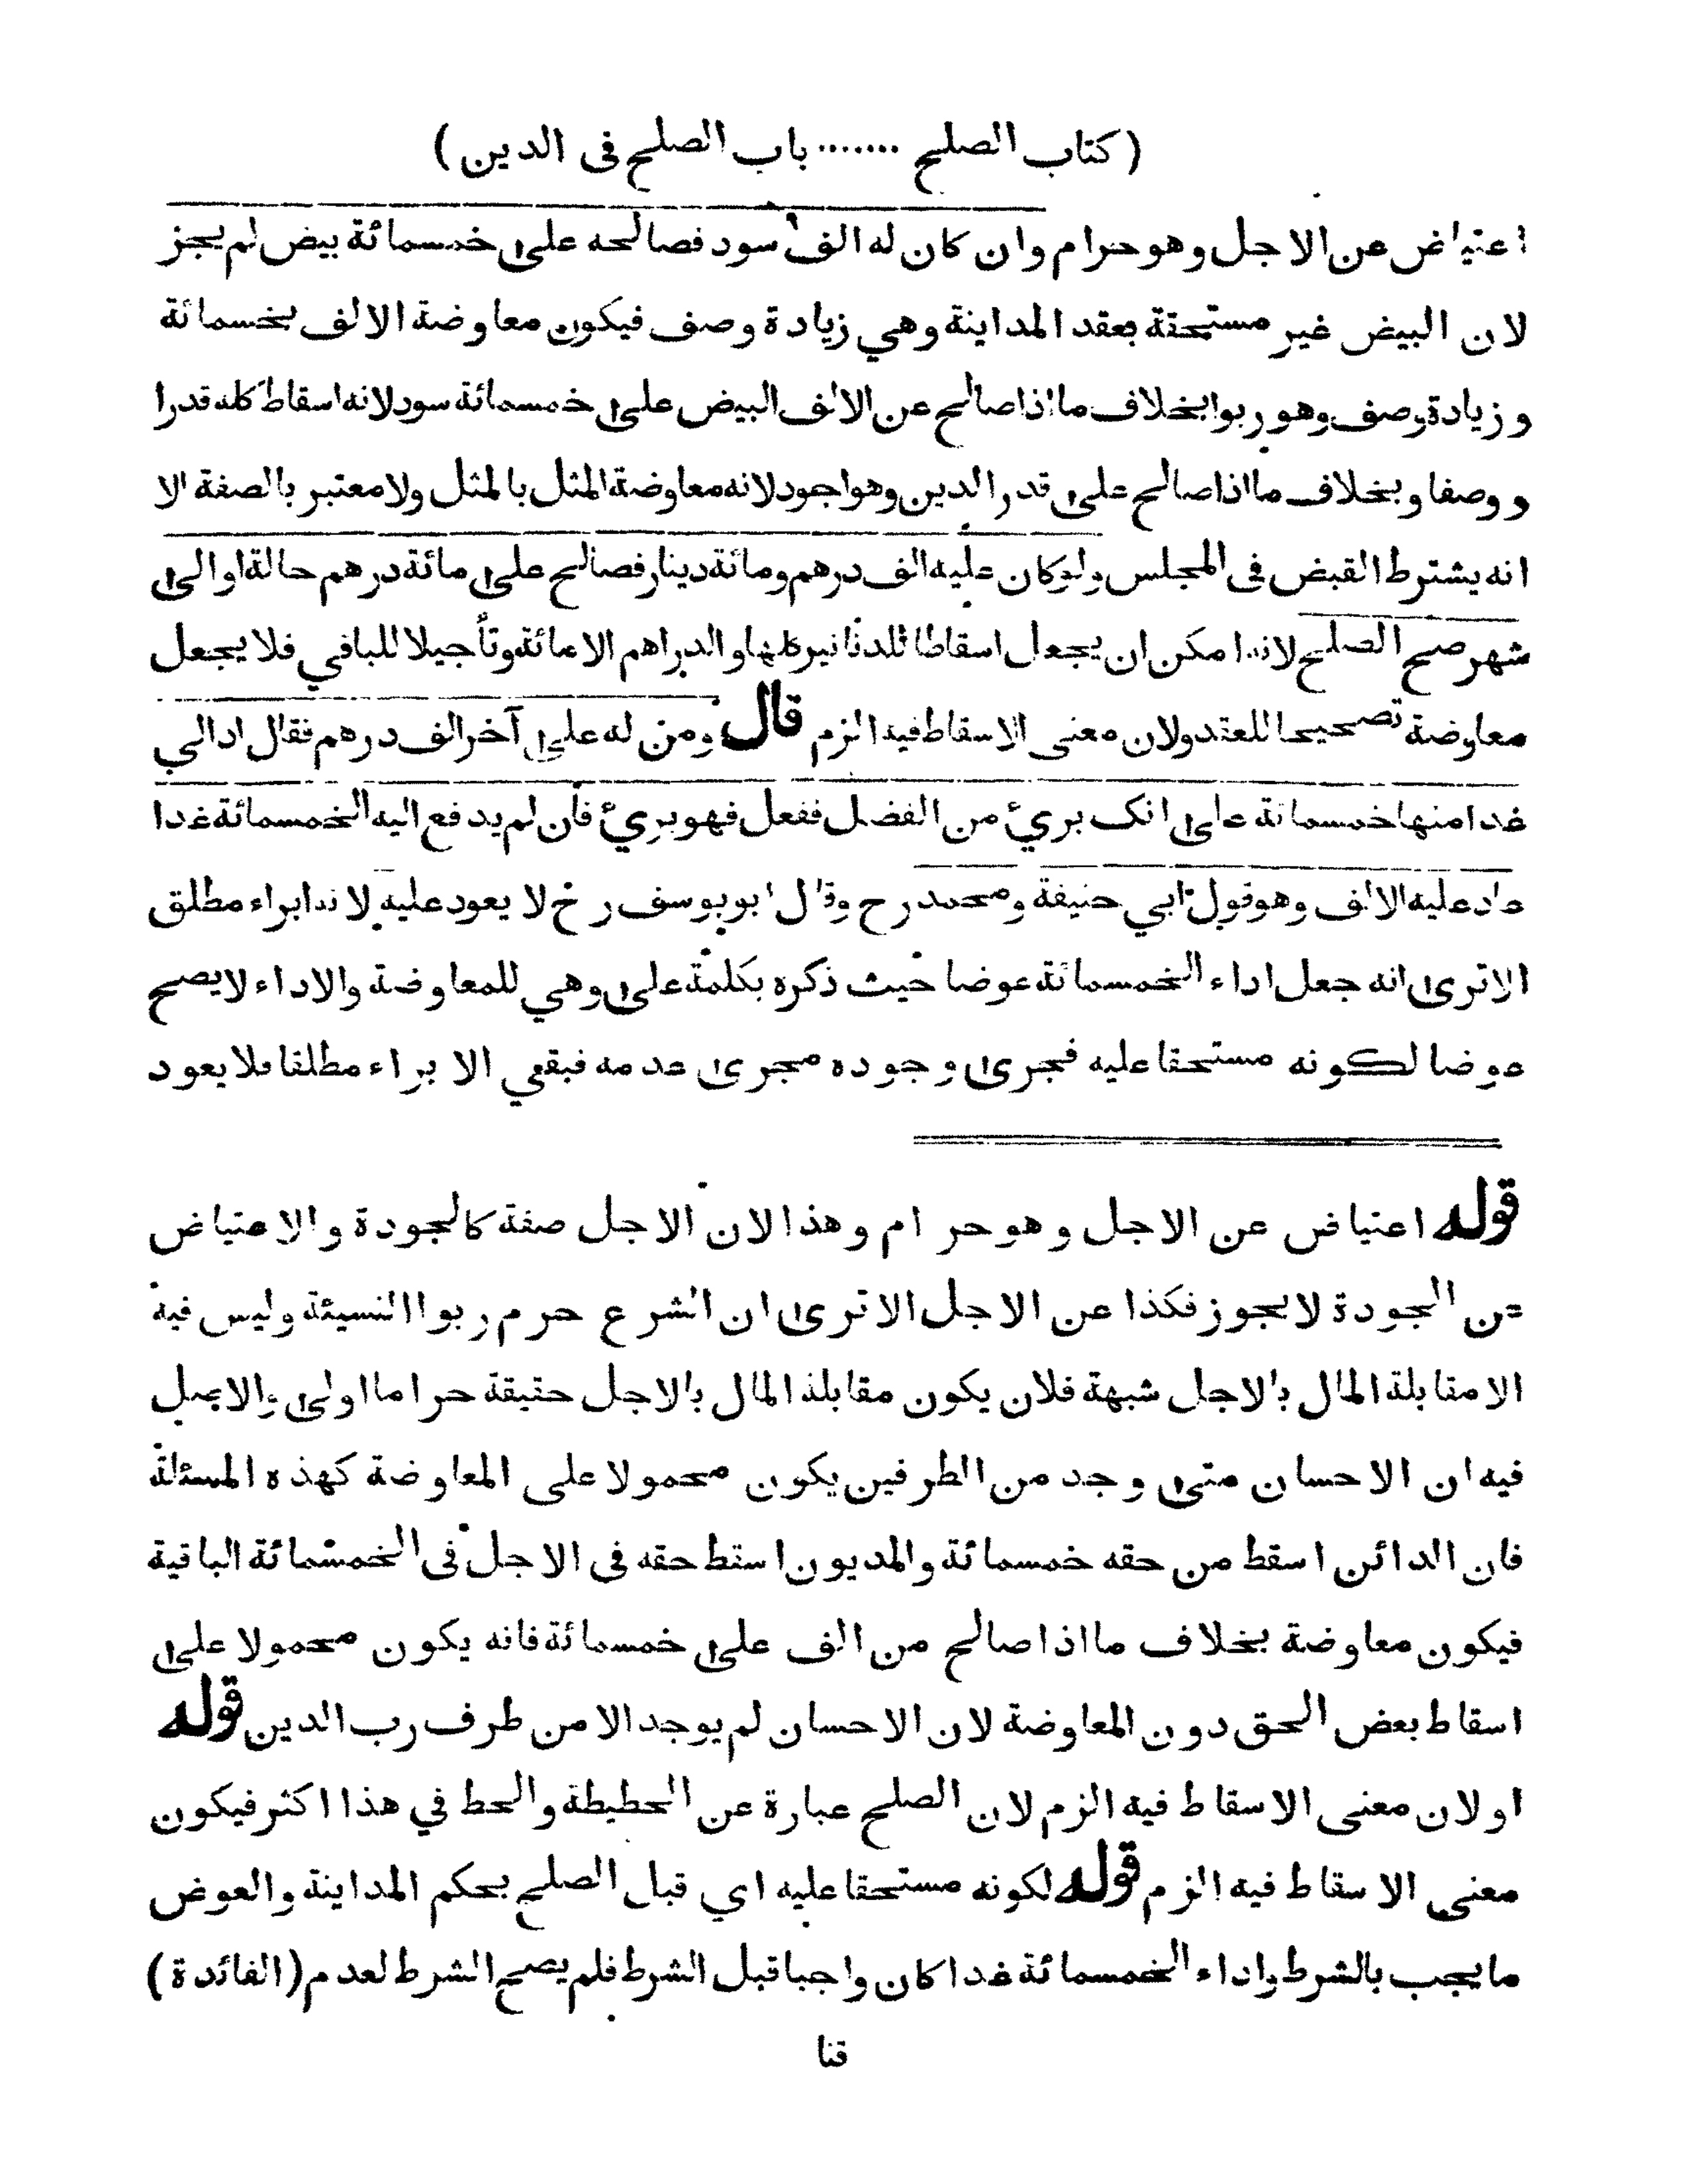 ( كتاب الصلح ....... باب الصلح فى الدين )
اعتياض عن الاجل وهو حرام وان كان له الف سود فصالحه على خمسمائة بيض لم يجز
لان البيض غير مستحقة بعقد المداينة وهي زيادة وصف فيكون معاوضة الالف بخمسمائة
وزيادة وصف وهو ربوا بخلاف ما اذا صالح عن الالف البيض على خمسمائة سود لانه اسقاط كله قدرا
ووصفا وبخلاف ما اذا صالح على قدر الدين وهو اجود لانه معاوضة المثل بالمثل ولا معتبر بالصفة الا
انه يشترط القبض فى المجلس ولو كان عليه الف درهم ومائة دينار فصالح على مائة درهم حالة او الى
شهر صح الصلح لانه امكن ان يجعل اسقاطا للدنانير كلها والدراهم الا مائة وتأجيلا للباقي فلا يجعل
معاوضة تصحيحا للعقد ولان معنى الاسقاط فيه الزم قال ومن له على آخر الف درهم فقال اد الي
غدا منها خمسمائة على انك بريئ من الفضل ففعل فهو بريئ فان لم يدفع اليه الخمسمائة غدا
عاد عليه الالف وهو قول ابي حنيفة ومحمد رح وقال ابو يوسف رح لا يعود عليه لانه ابراء مطلق
الا ترى انه جعل اداء الخمسمائة عوضا حيث ذكره بكلمة على وهي للمعاوضة والاداء لا يصح
عوضا لكونه مستحقا عليه فجرى وجوده مجرى عدمه فبقي الابراء مطلقا فلا يعود
قوله اعتياض عن الاجل وهو حرام وهذا لان الاجل صفة كالجودة والاعتياض
عن الجودة لا يجوز فكذا عن الاجل الا ترى ان الشرع حرم ربوا النسيئة وليس فيه
الا مقابلة المال بالاجل شبهة فلان يكون مقابلة المال بالاجل حقيقة حراما اولى والاصل
فيه ان الاحسان متى وجد من الطرفين يكون محمولا على المعاوضة كهذه المسئلة
فان الدائن اسقط من حقه خمسمائة والمديون اسقط حقه فى الاجل فى الخمسمائة الباقية
فيكون معاوضة بخلاف ما اذا صالح من الف على خمسمائة فانه يكون محمولا على
اسقاط بعض الحق دون المعاوضة لان الاحسان لم يوجد الا من طرف رب الدين قوله
او لان معنى الاسقاط فيه الزم لان الصلح عبارة عن الحطيطة والحط في هذا اكثر فيكون
معنى الاسقاط فيه الزم قوله لكونه مستحقا عليه اي قبل الصلح بحكم المداينة والعوض
ما يجب بالشرط واداء الخمسمائة غدا كان واجبا قبل الشرط فلم يصح الشرط لعدم (الفائدة)
قنا